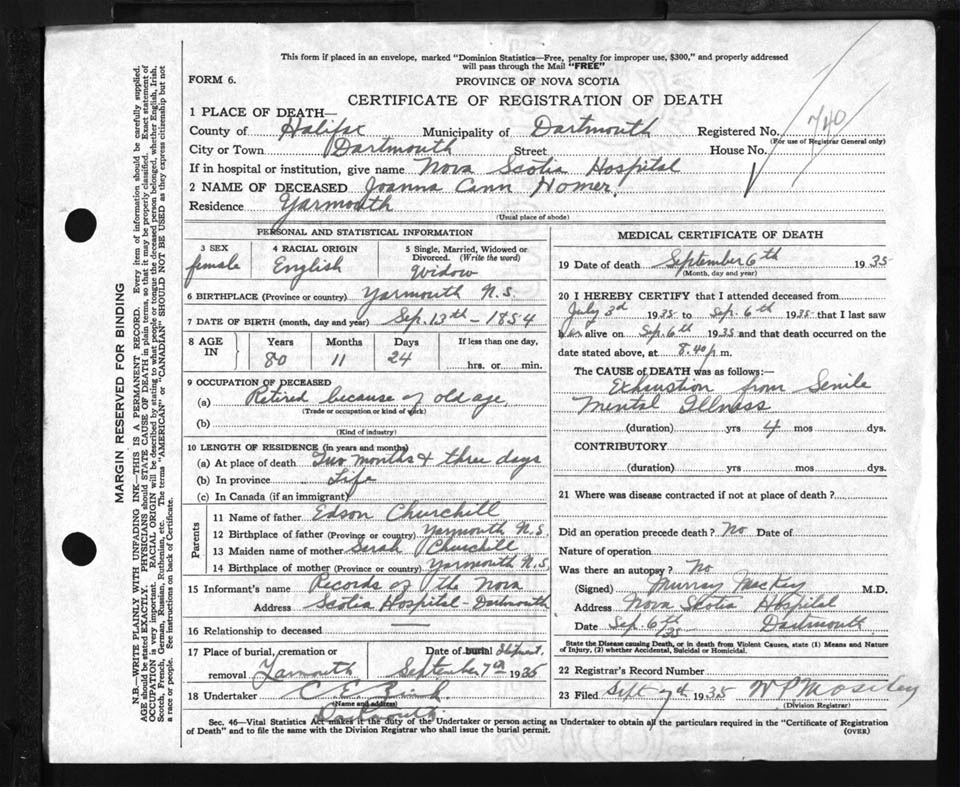 This form if placed in an envelope, marked "Dominion Statistics—Free, penalty for improper use, $300," and properly addressed
will pass through the Mail "FREE"
FORM 6.
PROVINCE OF NOVA SCOTIA
CERTIFICATE OF REGISTRATION OF DEATH
1 PLACE OF DEATH—
County of Halifax Municipality of Dartmouth Registered No. 740
(For use of Registrar General only)
City or Town Dartmouth Street House No.
If in hospital or institution, give name Nova Scotia Hospital
2 NAME OF DECEASED Joanna Cann Homer
Residence Yarmouth
(Usual place of abode)
PERSONAL AND STATISTICAL INFORMATION
3 SEX 4 RACIAL ORIGIN 5 Single, Married, Widowed or
Divorced. (Write the word)
female English Widow
6 BIRTHPLACE (Province or country) Yarmouth N.S.
7 DATE OF BIRTH (month, day and year) Sep. 13th - 1854
8 AGE IN Years Months Days If less than one day,
80 11 24 hrs. or min.
9 OCCUPATION OF DECEASED
(a) Retired because of old age,
(Trade or occupation or kind of work)
(b)
(Kind of industry)
10 LENGTH OF RESIDENCE (in years and months)
(a) At place of death Two months & three days
(b) In province Life
(c) In Canada (if an immigrant)
Parents
11 Name of father Edson Churchill
12 Birthplace of father (Province or country) Yarmouth N.S.
13 Maiden name of mother Sarah Churchill
14 Birthplace of mother (Province or country) Yarmouth N.S.
15 Informant's name Records of the Nova
Address Scotia Hospital - Dartmouth
16 Relationship to deceased
17 Place of burial, cremation or Date of burial
removal Yarmouth September 7th 1935
18 Undertaker C.E.
(Name and address)
Dartmouth
MEDICAL CERTIFICATE OF DEATH
19 Date of death September 6th 1935
(Month, day and year)
20 I HEREBY CERTIFY that I attended deceased from
July 3d 1935 to Sep. 6th 1935 that I last saw
her alive on Sep. 6th 1935 and that death occurred on the
date stated above, at 8.40 p. m.
The CAUSE of DEATH was as follows:—
Exhaustion from Senile
Mental Illness
(duration) yrs 4 mos dys.
CONTRIBUTORY
(duration) yrs. mos dys.
21 Where was disease contracted if not at place of death?
Did an operation precede death? No Date of
Nature of operation
Was there an autopsy? No
(Signed) Murray MacKay M.D.
Address Nova Scotia Hospital
Date Sep. 6th/35 Dartmouth
State the Disease causing Death, or in death from Violent Causes, state (1) Means and Nature
of Injury, (2) whether Accidental, Suicidal or Homicidal.
22 Registrar's Record Number
23 Filed Sept 7th 1935 W P Moseley
(Division Registrar)
Sec. 46—Vital Statistics Act makes it the duty of the Undertaker or person acting as Undertaker to obtain all the particulars required in the "Certificate of Registration
of Death" and to file the same with the Division Registrar who shall issue the burial permit. (OVER)
MARGIN RESERVED FOR BINDING
N.B.—WRITE PLAINLY WITH UNFADING INK—THIS IS A PERMANENT RECORD. Every item of information should be carefully supplied.
AGE should be stated EXACTLY. PHYSICIANS should STATE CAUSE OF DEATH in plain terms, so that it may be properly classified. Exact statement of
OCCUPATION is very important. RACIAL ORIGIN will be described by stating to what people or tongue the deceased person belonged, whether English, Irish,
Scotch, French, German, Russian, Ruthenian, etc. The terms "AMERICAN" or "CANADIAN" SHOULD NOT BE USED as they express citizenship but not
a race or people. See instructions on back of Certificate.